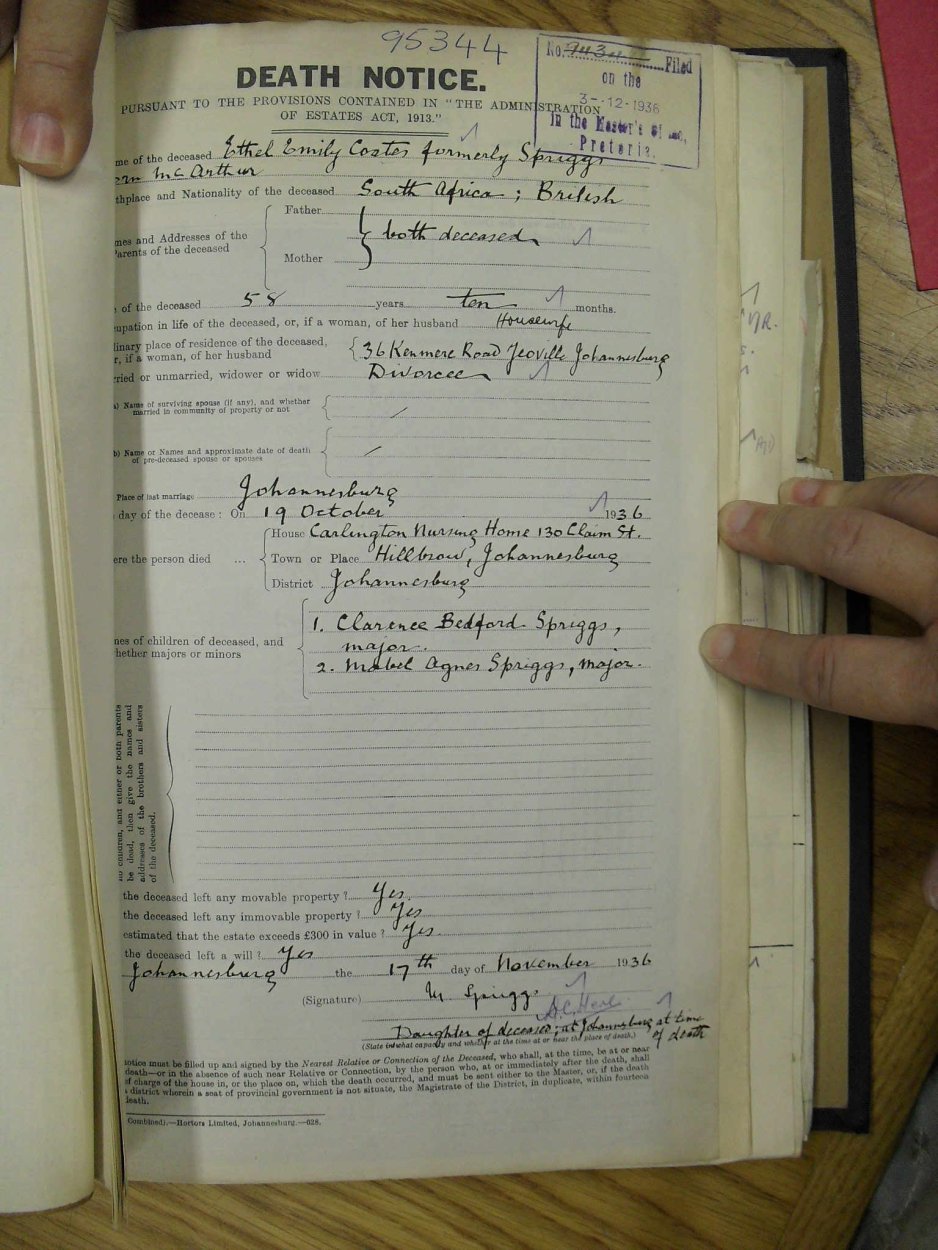 95344
No. 9434 Filed
on the
3--12-1936
In the Master's
Pretoria.
DEATH NOTICE.
PURSUANT TO THE PROVISIONS CONTAINED IN "THE ADMINISTRATION
OF ESTATES ACT, 1913."
me of the deceased Ethel Emily Coates formerly Spriggs
orn McArthur
thplace and Nationality of the deceased South Africa; British
mes and Addresses of the
Parents of the deceased
Father
both deceased
Mother
of the deceased 58 years ten months.
upation in life of the deceased, or, if a woman, of her husband Housewife
dinary place of residence of the deceased,
r, if a woman, of her husband
36 Kenmere Road Yeoville Johannesburg
ried or unmarried, widower or widow Divorcee
a) Name of surviving spouse (if any), and whether
married in community of property or not
b) Name or Names and approximate date of death
of pre-deceased spouse or spouses
Place of last marriage Johannesburg
day of the decease: On 19 October 1936
ere the person died ...
House Carlington Nursing Home 130 Claim St.
Town or Place Hillbrow, Johannesburg
District Johannesburg
nes of children of deceased, and
hether majors or minors
1. Clarence Bedford Spriggs,
major.
2. Mabel Agnes Spriggs, major.
no children, and either or both parents
be dead, then give the names and
addresses of the brothers and sisters
of the deceased.
the deceased left any movable property? Yes.
the deceased left any immovable property? Yes
estimated that the estate exceeds £300 in value? Yes.
the deceased left a will? Yes
Johannesburg the 17th day of November 1936
(Signature) M Spriggs
Daughter of deceased; at Johannesburg at time
of death
(State in what capacity and whether at the time at or near the place of death.)
notice must be filled up and signed by the Nearest Relative or Connection of the Deceased, who shall, at the time, be at or near
death—or in the absence of such near Relative or Connection, by the person who, at or immediately after the death, shall
f charge of the house in, or the place on, which the death occurred, and must be sent either to the Master, or, if the death
a district wherein a seat of provincial government is not situate, the Magistrate of the District, in duplicate, within fourteen
death.
Combined).—Hortors Limited, Johannesburg.—628.